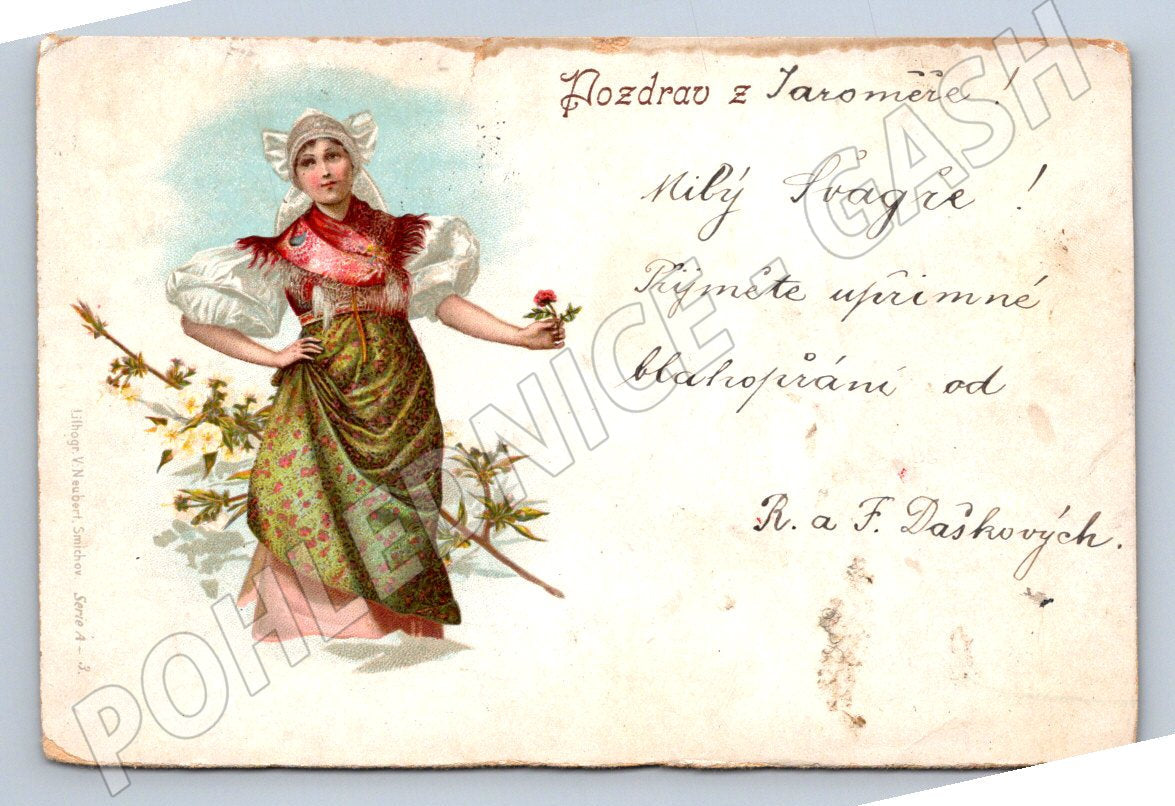 Pozdrav z Jaroměře!
Milý Švagře!
Přijměte upřimné
blahopřání od
R. a F. Daškových.
Lithogr. V. Neubert. Smichov. Serie A - 3.
POHLEDNICE - GASH